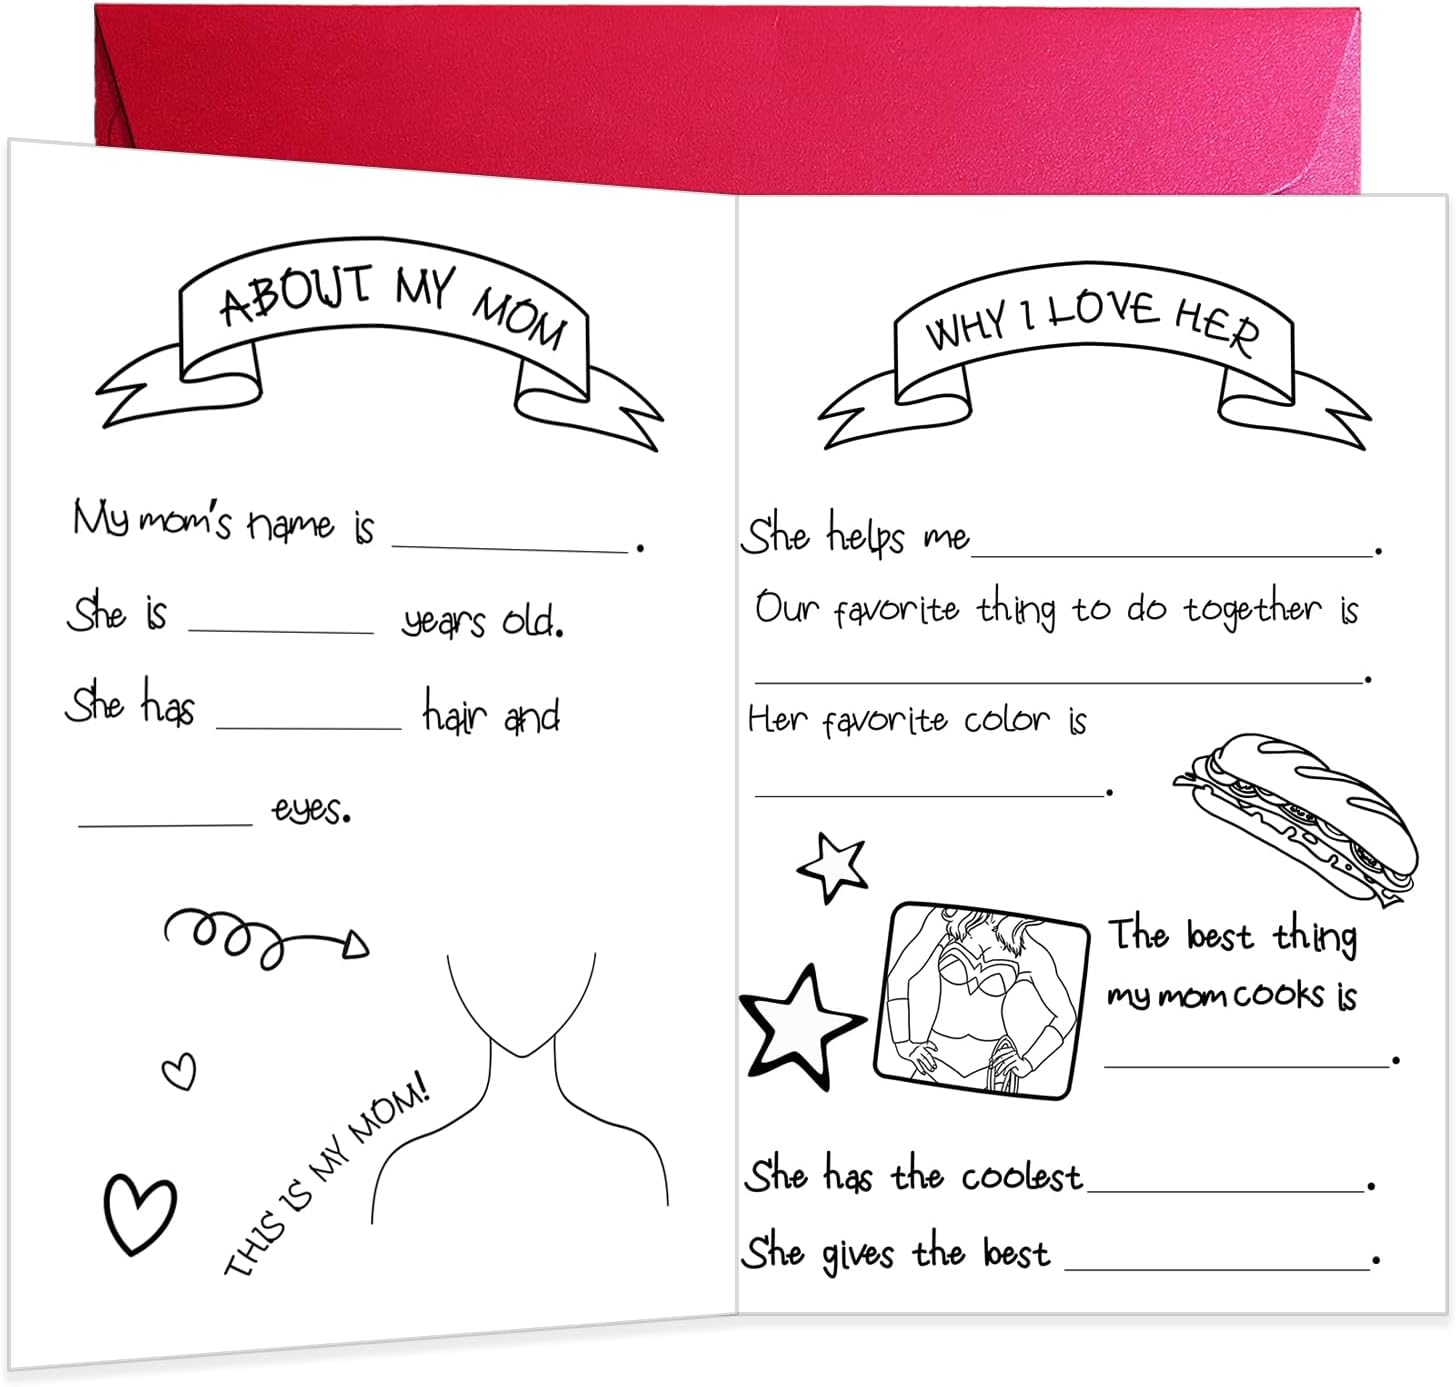 ABOUT MY MOM
My mom's name is ____________.
She is __________ years old.
She has __________ hair and
__________ eyes.
THIS IS MY MOM!
WHY I LOVE HER
She helps me____________________.
Our favorite thing to do together is
______________________________.
Her favorite color is
__________________.
The best thing
my mom cooks is
______________.
She has the coolest______________.
She gives the best ______________.